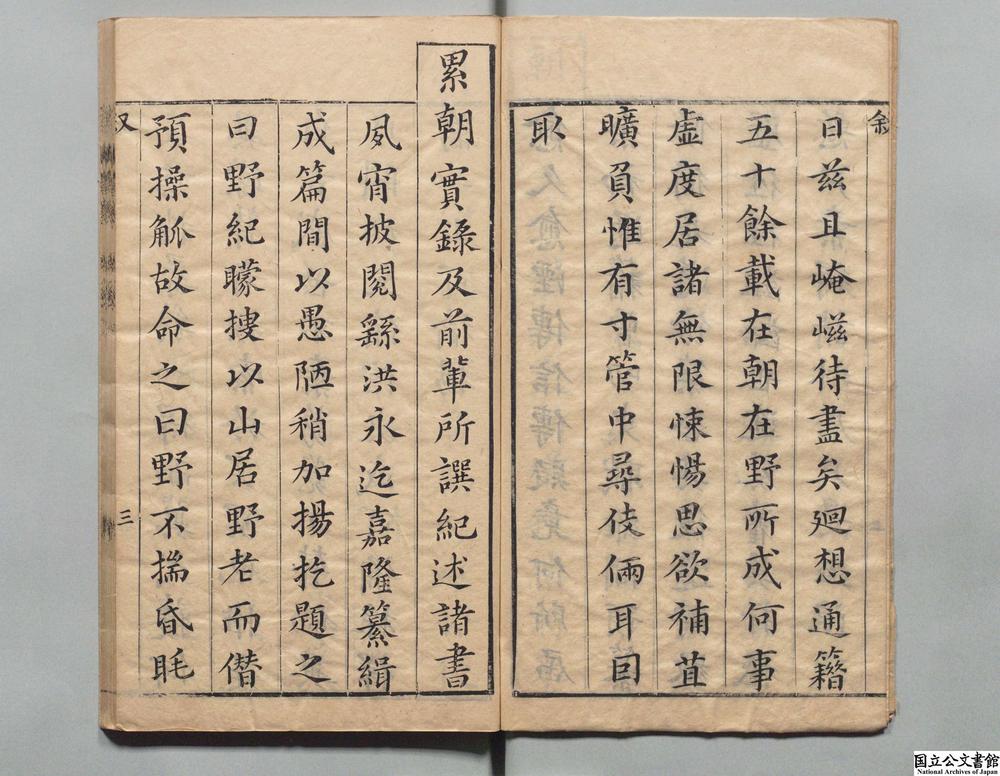 日茲且崦嵫待盡矣廻想通籍
五十餘載在朝在野所成何事
虛度居諸無限悚惕思欲補苴
曠負惟有寸管中尋伎倆耳囙
取
累朝實錄及前輩所譔紀述諸書
夙宵披閱繇洪永迄嘉隆纂緝
成篇間以愚陋稍加揚扢題之
曰野紀矇搜以山居野老而僭
預操觚故命之曰野不揣昏眊
三
国立公文書館
National Archives of Japan